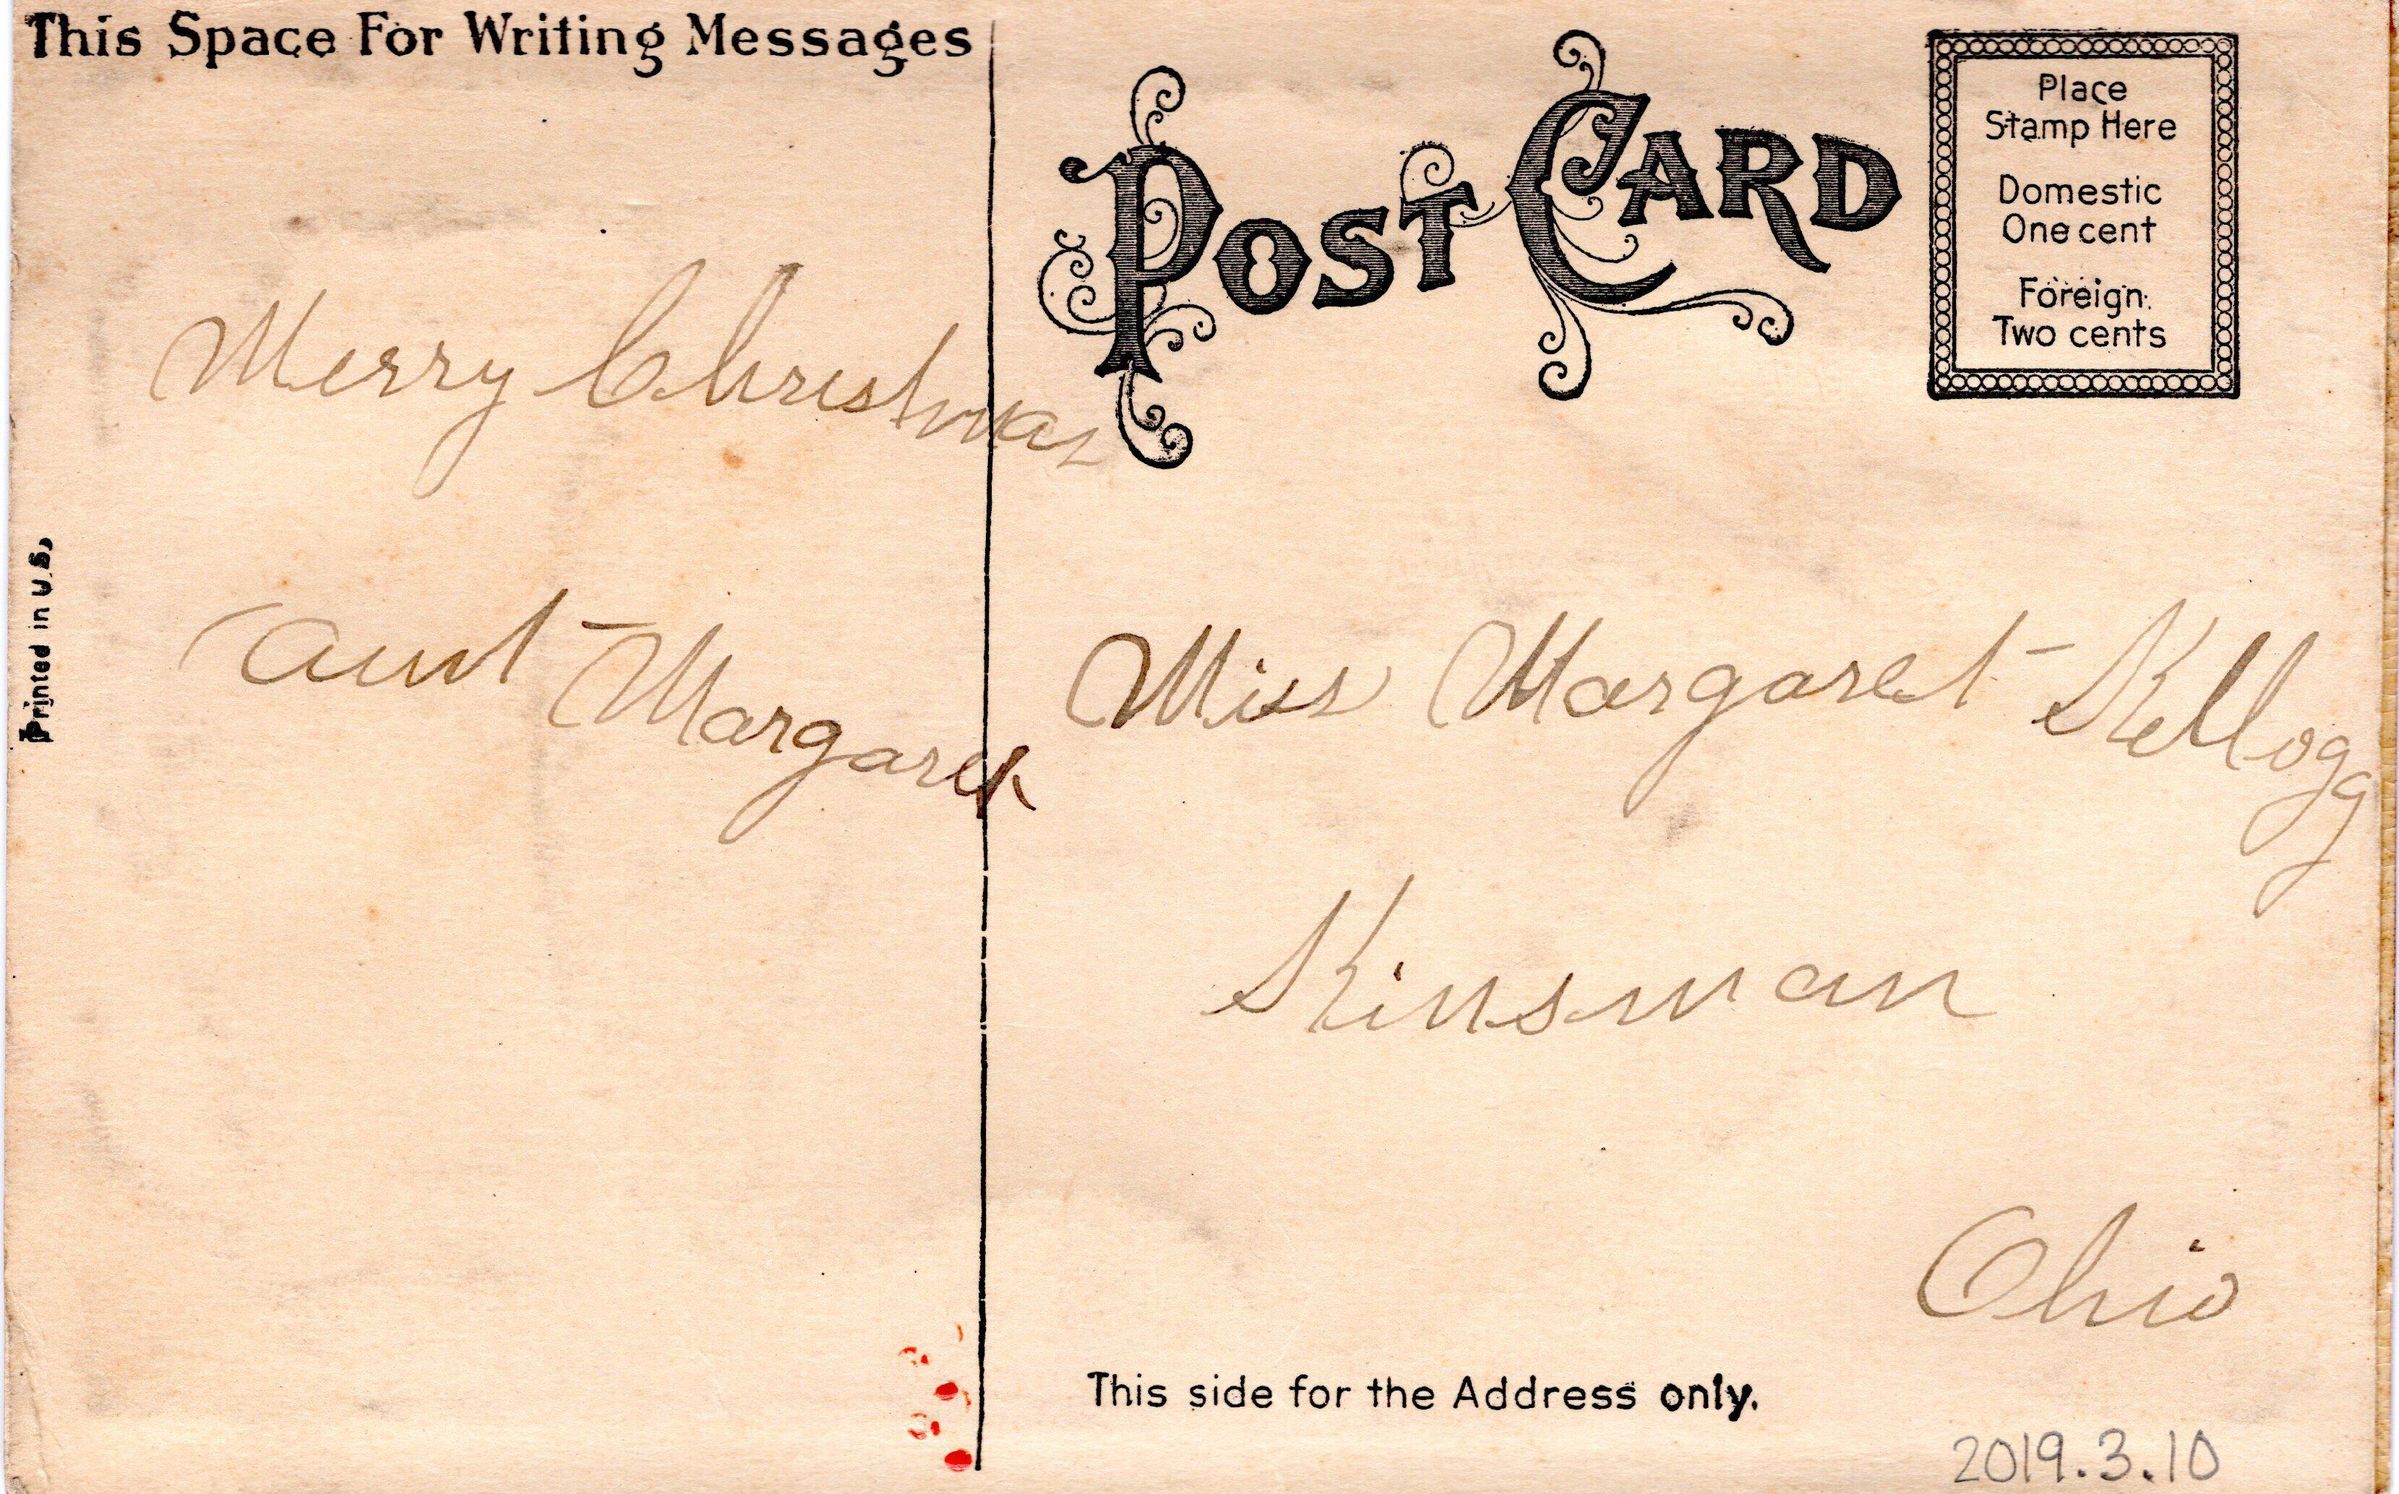 This Space For Writing Messages
Merry Christmas
Aunt Margaret
Printed in U.S,
POST CARD
Place
Stamp Here
Domestic
One cent
Foreign
Two cents
Miss Margaret Kellogg
Kinsman
Ohio
This side for the Address only.
2019.3.10